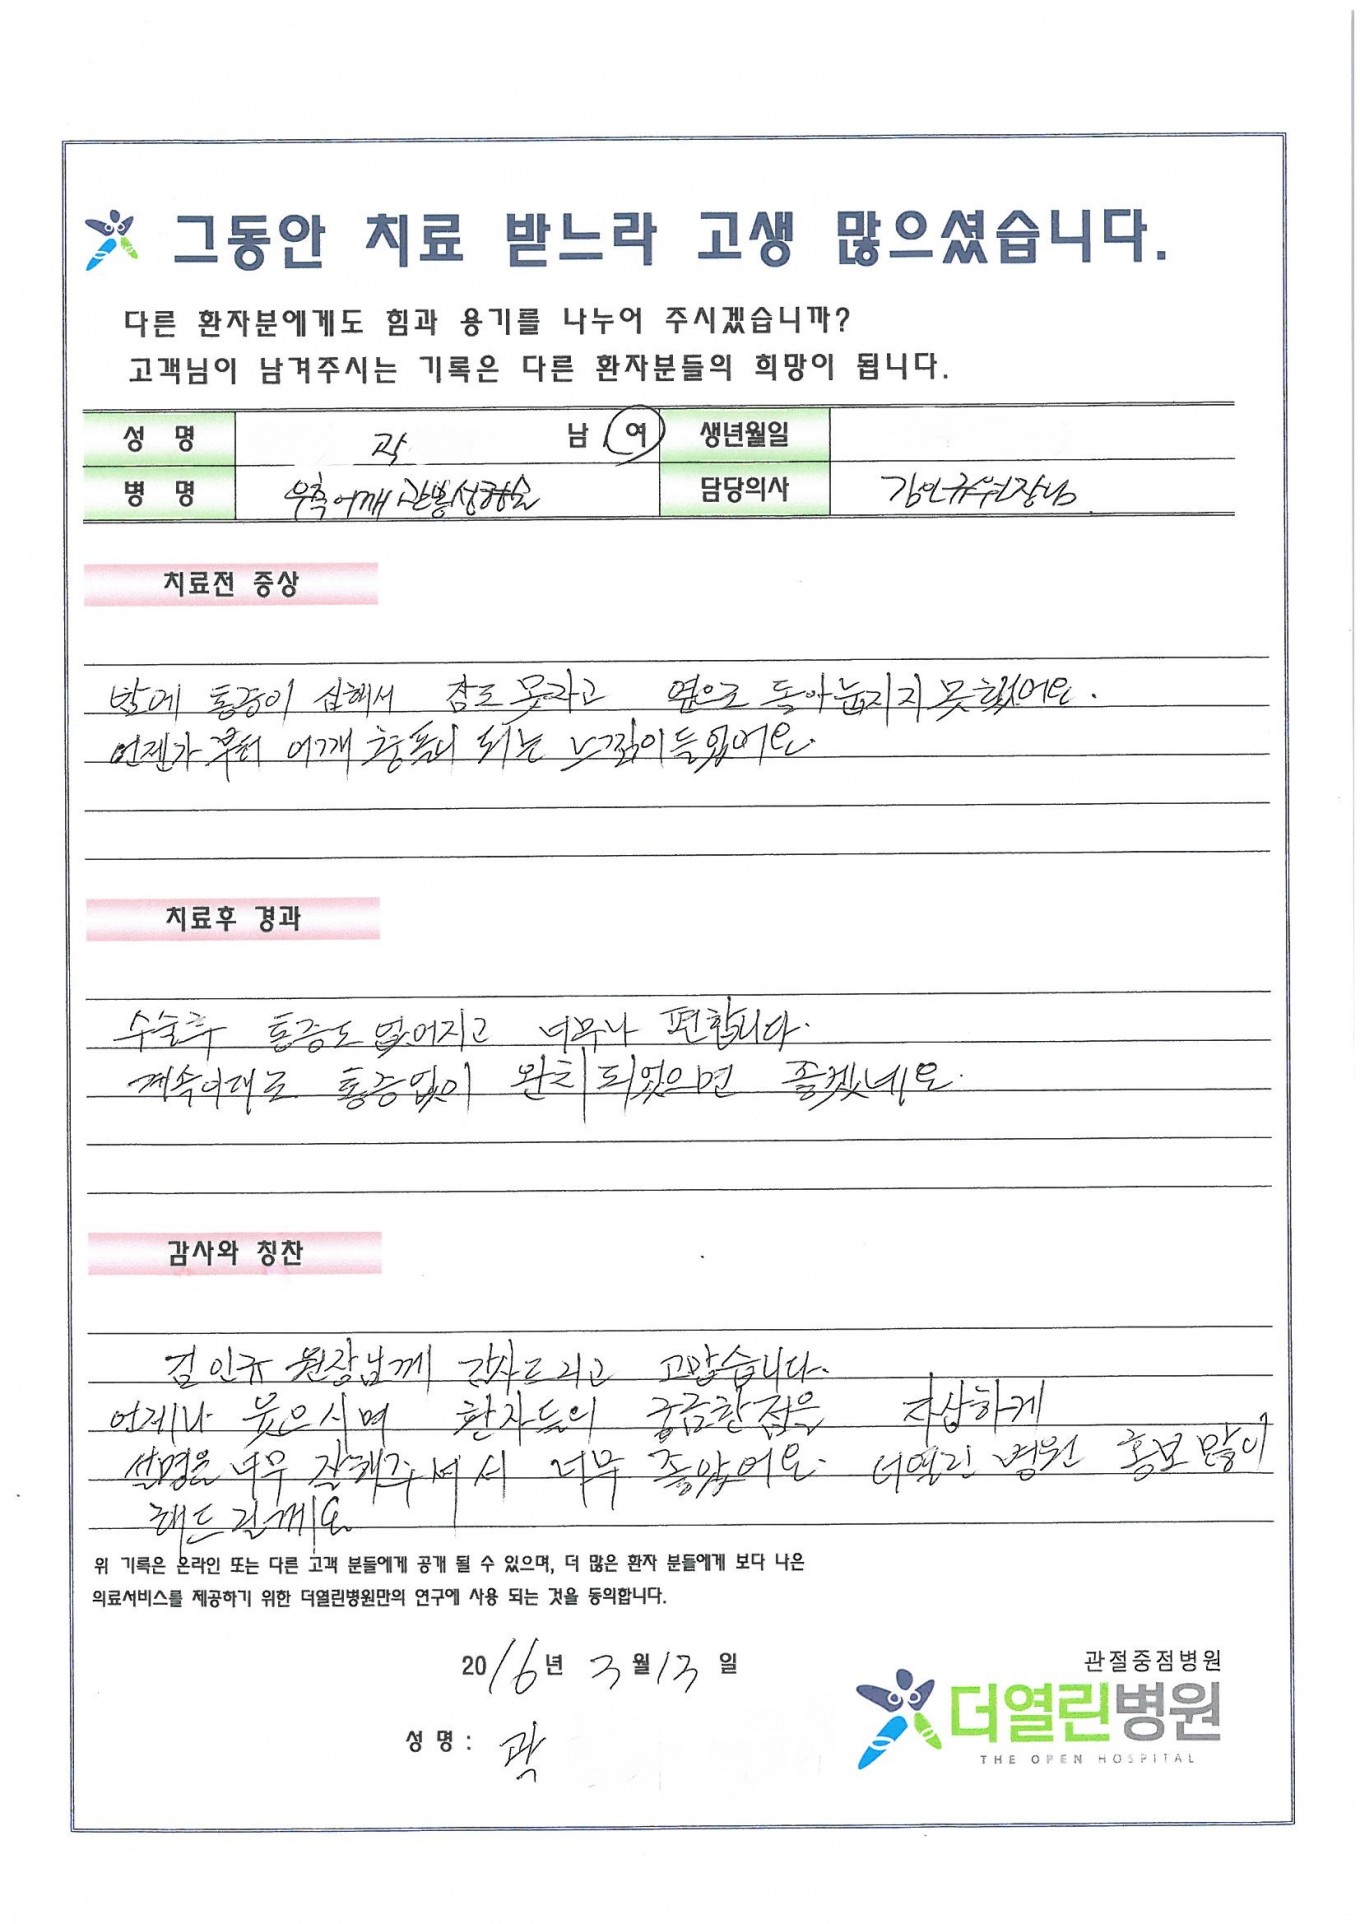 그동안 치료 받느라 고생 많으셨습니다.
다른 환자분에게도 힘과 용기를 나누어 주시겠습니까?
고객님이 남겨주시는 기록은 다른 환자분들의 희망이 됩니다.
성 명 곽 남 여 생년월일
병 명 우측어깨 관봉성형술 담당의사 김인규원장님
치료전 증상
밤에 통증이 심해서 잠도 못자고 옆으로 돌아눕지지 못했어요.
언젠가 부터 어깨 충돌이 되는 느낌이 들었어요.
치료후 경과
수술후 통증도 없어지고 너무나 편합니다.
계속이대로 통증없이 완치 되었으면 좋겠네요.
감사와 칭찬
김인규 원장님께 감사드리고 고맙습니다.
언제나 웃으시며 환자들의 궁금한점을 자상하게
설명을 너무 잘해주셔서 너무 좋았어요. 더열린 병원 홍보 많이
해드릴께요.
위 기록은 온라인 또는 다른 고객 분들에게 공개 될 수 있으며, 더 많은 환자 분들에게 보다 나은
의료서비스를 제공하기 위한 더열린병원만의 연구에 사용 되는 것을 동의합니다.
2016년 3월 13일
성 명 : 곽
관절중점병원
더열린병원
THE OPEN HOSPITAL